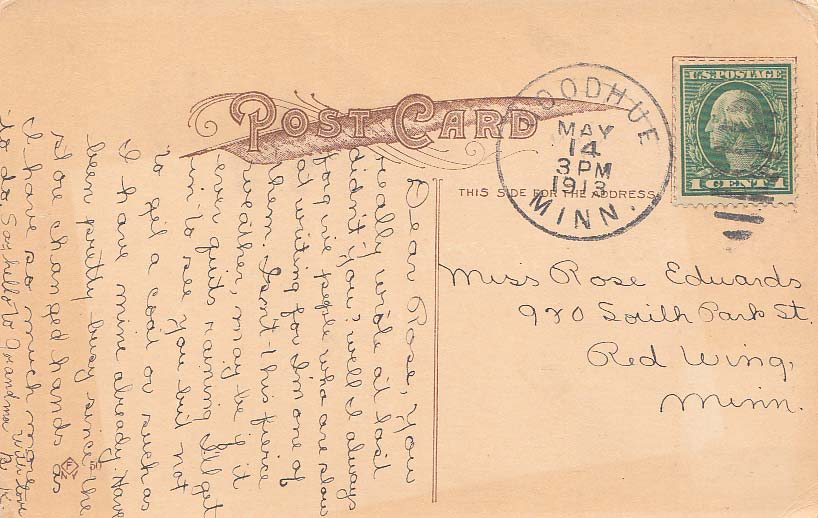 POST CARD
GOODHUE
MAY
14
3 PM
1913
MINN.
U.S. POSTAGE
1 CENT 1
THIS SIDE FOR THE ADDRESS
Miss Rose Edwards
920 South Park St.
Red Wing,
Minn.
Dear Rose, You
really wrote at last
didn't you? well I always
forgive people who are slow
at writing for I'm one of
them. Isn't this fierce
weather, may be if it
ever quits raining I'll get
in to see you but not
to get a coat or such as
I have mine already. Have
been pretty busy since the
store changed hands as
I have so much more
to do. Say hello to Grandma
With love
B. K.